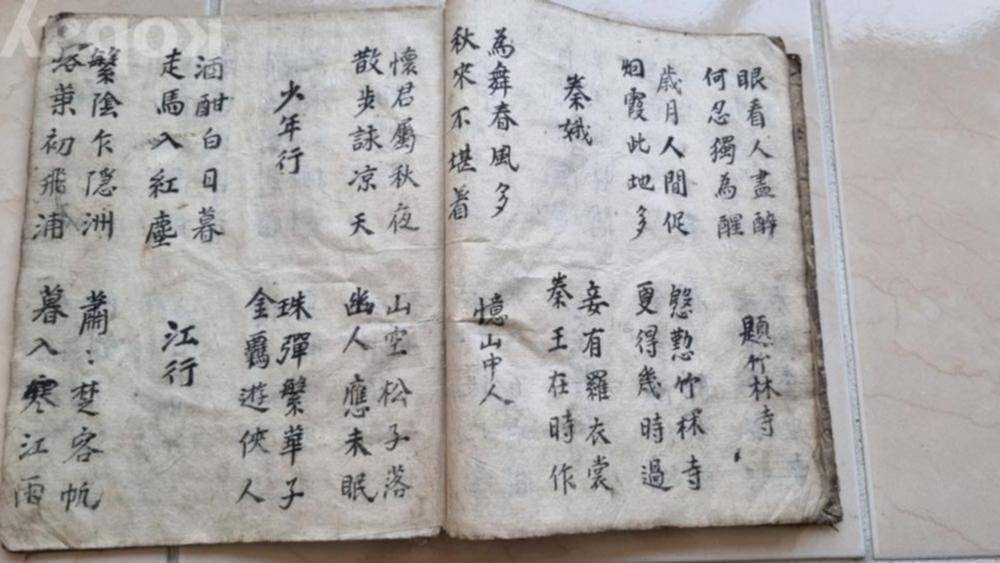 眼看人盡醉
何忍獨為醒
題竹林寺
歲月人間促
烟霞此地多
慇懃竹林寺
更得幾時過
秦娥
妾有羅衣裳
秦王在時作
為舞春風多
秋來不堪着
憶山中人
懷君屬秋夜
散步詠凉天
山空松子落
幽人應未眠
少年行
珠彈繁華子
金羈遊俠人
酒酣白日暮
走馬入紅塵
江行
繁陰乍隱洲
落葉初飛浦
蕭〻楚客帆
暮入寒江雨